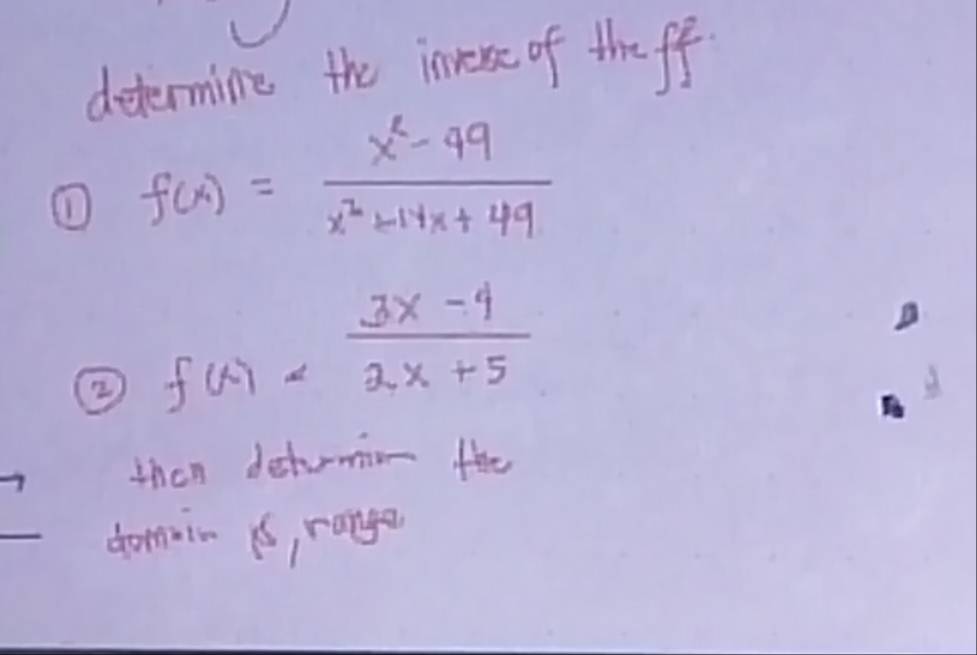 determine the inverse of the ff.
① f(x) = x² - 49 / x² + 14x + 49
② f(x) = 3x - 4 / 2x + 5
then determine the
domain &, range